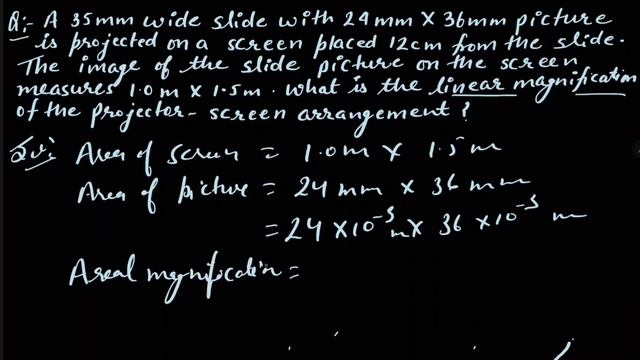 Q:- A 35mm wide slide with 24mm X 36mm picture
is projected on a screen placed 12cm from the slide.
The image of the slide picture on the screen
measures 1.0m X 1.5m. What is the linear magnification
of the projector-screen arrangement?
Sol: Area of screen = 1.0m X 1.5m
Area of picture = 24 mm X 36 mm
= 24 X 10^-3 m X 36 X 10^-3 m
Areal magnification =